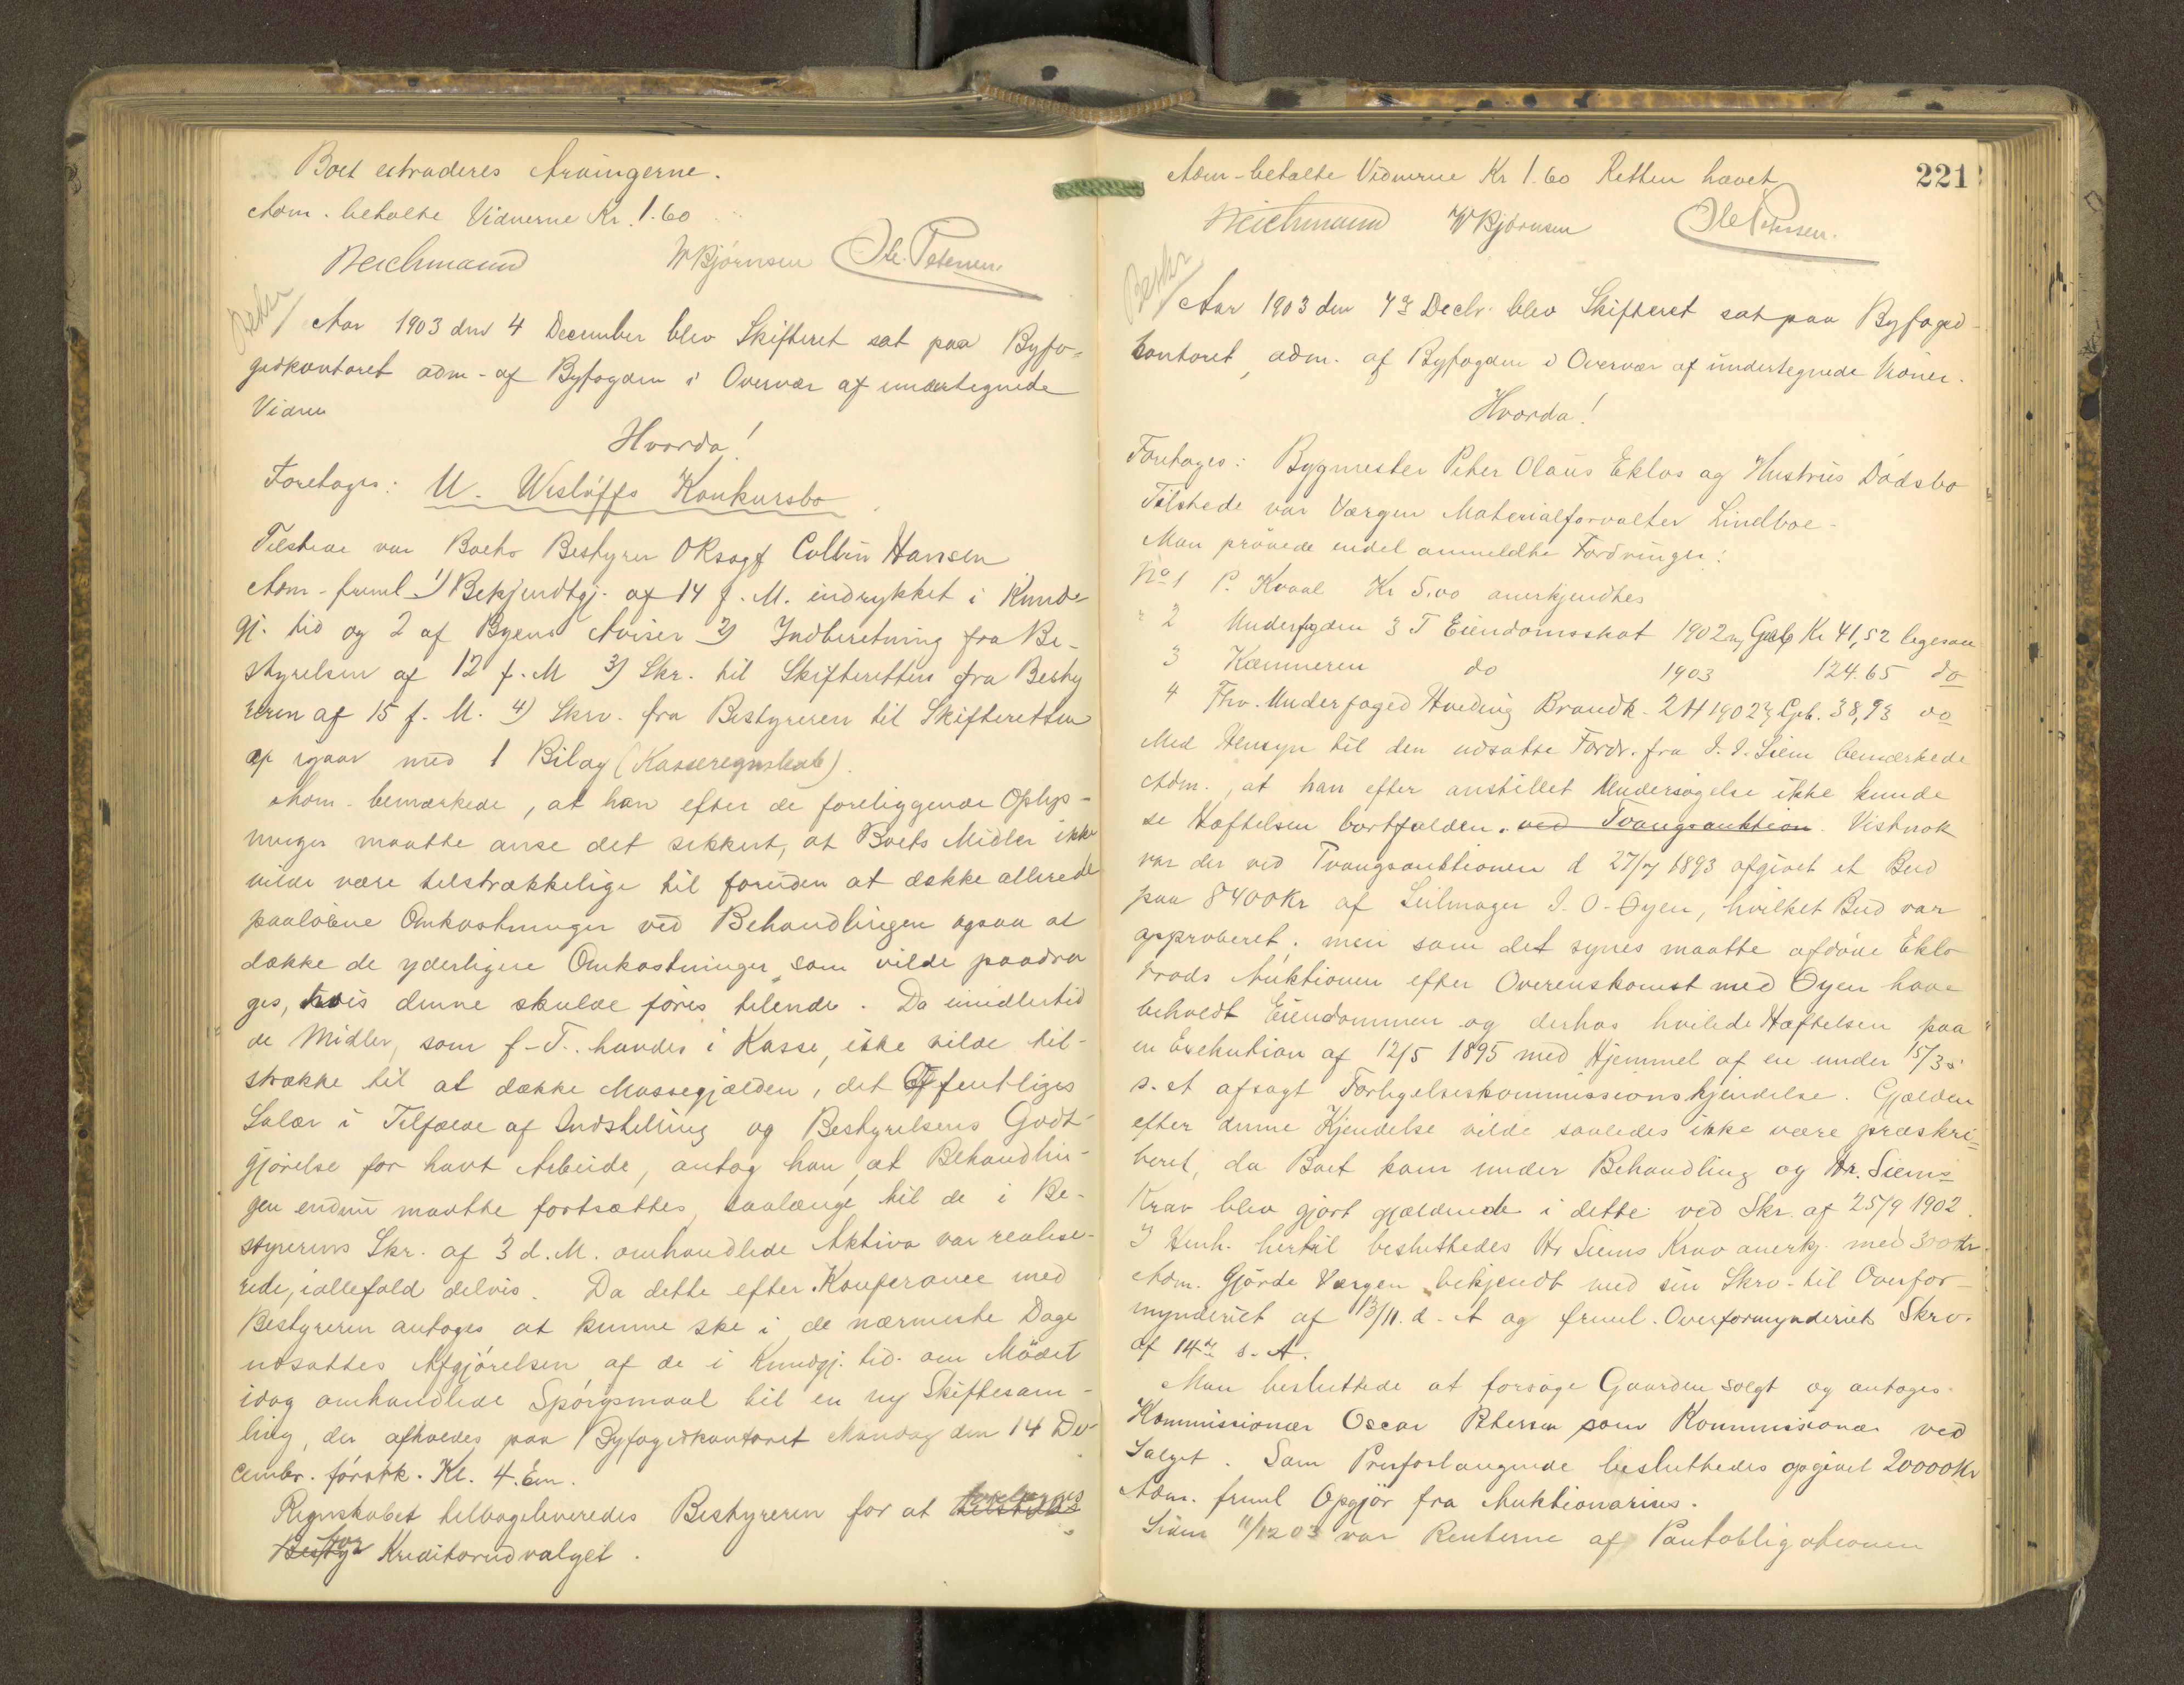 Boet extraderes Arvingerne.
Adm. betalte Vidnerne Kr. 1.60
Meichmann W Bjørnsen Ole Petersen.
Bekr
Aar 1903 den 4 December blev Skifteret sat paa Byfo-
gedkontoret adm. af Byfogden i Overvær af undertegnede
Vidner
Hvorda!
Foretages: U. Wisløffs Konkursbo
Tilstede var Boets Bestyrer ORsagf Collin Hansen
Adm. freml 1) Bekjendtgj. af 14 f. M. indrykket i Kund-
gj. tid og 2 af Byens Aviser 2) Indberetning fra Be-
styrelsen af 12 f. M 3) Skr. til Skifteretten fra Besty
reren af 15 f. M. 4) Skrv. fra Bestyreren til Skifteretten
af igaar med 1 Bilag (Kasseregnskab).
Adm. bemærkede, at han efter de foreliggende Oplys-
ninger maatte anse det sikkert, at Boets Midler ikke
vilde være tilstrækkelige til foruden at dække allerede
paaløbne Omkostninger ved Behandlingen ogsaa at
dække de yderligere Omkostninger som vilde paadra
ges, hvis denne skulde føres tilende. Da imidlertid
de Midler, som f. T. havdes i Kasse, ikke vilde til-
strække til at dække Massegjælden, det Offentliges
Salær i Tilfælde af Indstilling og Bestyrelsens Godt-
gjørelse for havt Arbeide, antog han, at Behandlin-
gen endnu maatte fortsættes, saalænge til de i Be-
styrerens Skr. af 3 d. M. omhandlede Aktiva var realise-
rede, iallefald delvis. Da dette efter Konferance med
Bestyreren antoges at kunne ske i de nærmeste Dage
udsattes Afgjørelsen af de i Kundgj. tid. om Mødet
idag omhandlede Spørgsmaal til en ny Skiftesam-
ling, der afholdes paa Byfogedkontoret Mandag den 14 De-
cember. førstk. Kl. 4. Em.
Regnskabet tilbageleveredes Bestyreren for at forelægges
for Kreditorudvalget.
221
Adm. betalte Vidnerne Kr 1.60 Retten hævet
Meichmann W Bjørnsen Ole Petersen.
Bekr
Aar 1903 den 7de Decbr. blev Skifteret sat paa Byfoged-
kontoret, adm. af Byfogden i Overvær af undertegnede Vidner.
Hvorda!
Foretages: Bygmester Peter Olaus Eklos og Hustrus Dødsbo
Tilstede var Værgen Materialforvalter Lindboe.
Man prøvede endel anmeldte Fordringer:
No 1 P. Kvaal Kr 5,00 anerkjendtes
" 2 Underfogden 3 T Eiendomsskat 1902 og Geb Kr 41,52 ligesaa
3 Kæmneren do 1903 124.65 do
4 Fhv. Underfoged Hveding Brandk. 2 H 1902 og Geb. 38,93 do
Med Hensyn til den udsatte Fordr. fra I. I. Siem bemærkede
Adm., at han efter anstillet Undersøgelse ikke kunde
se Hæftelsen bortfalden. ved Tvangsauktion. Vistnok
var der ved Tvangsauktionen d 27/7 1893 afgivet et Bud
paa 8400 Kr af Seilmager I. O. Øyen, hvilket Bud var
approberet; men som det synes maatte afdøde Eklo
trods Auktionen efter Overenskomst med Øyen have
beholdt Eiendommen og derhos hvilede Hæftelsen paa
en Exekution af 12/5 1895 med Hjemmel af en under 15/3
s. A afsagt Forligelseskommissionskjendelse. Gjælden
efter denne Kjendelse vilde saaledes ikke være præskri-
beret, da Boet kom under Behandling og Hr. Siems
Krav blev gjort gjældende i dette ved Skr. af 25/9 1902.
I Henh. hertil besluttedes Hr Siems Krav anerkj. med 300 Kr.
Adm. Gjorde Værgen bekjendt med sin Skrv. til Overfor-
mynderiet af 13/11. d. A og freml. Overformynderiets Skrv.
af 14de s. A.
Man besluttede at forsøge Gaarden solgt og antoges
Kommissionær Oscar Petersen som Kommissionær ved
Salget. Som Prisforlangende besluttedes opgivet 20000 Kr
Adm. freml Opgjør fra Auktionarius.
Siden 11/12 03 var Renterne af Pantobligationen